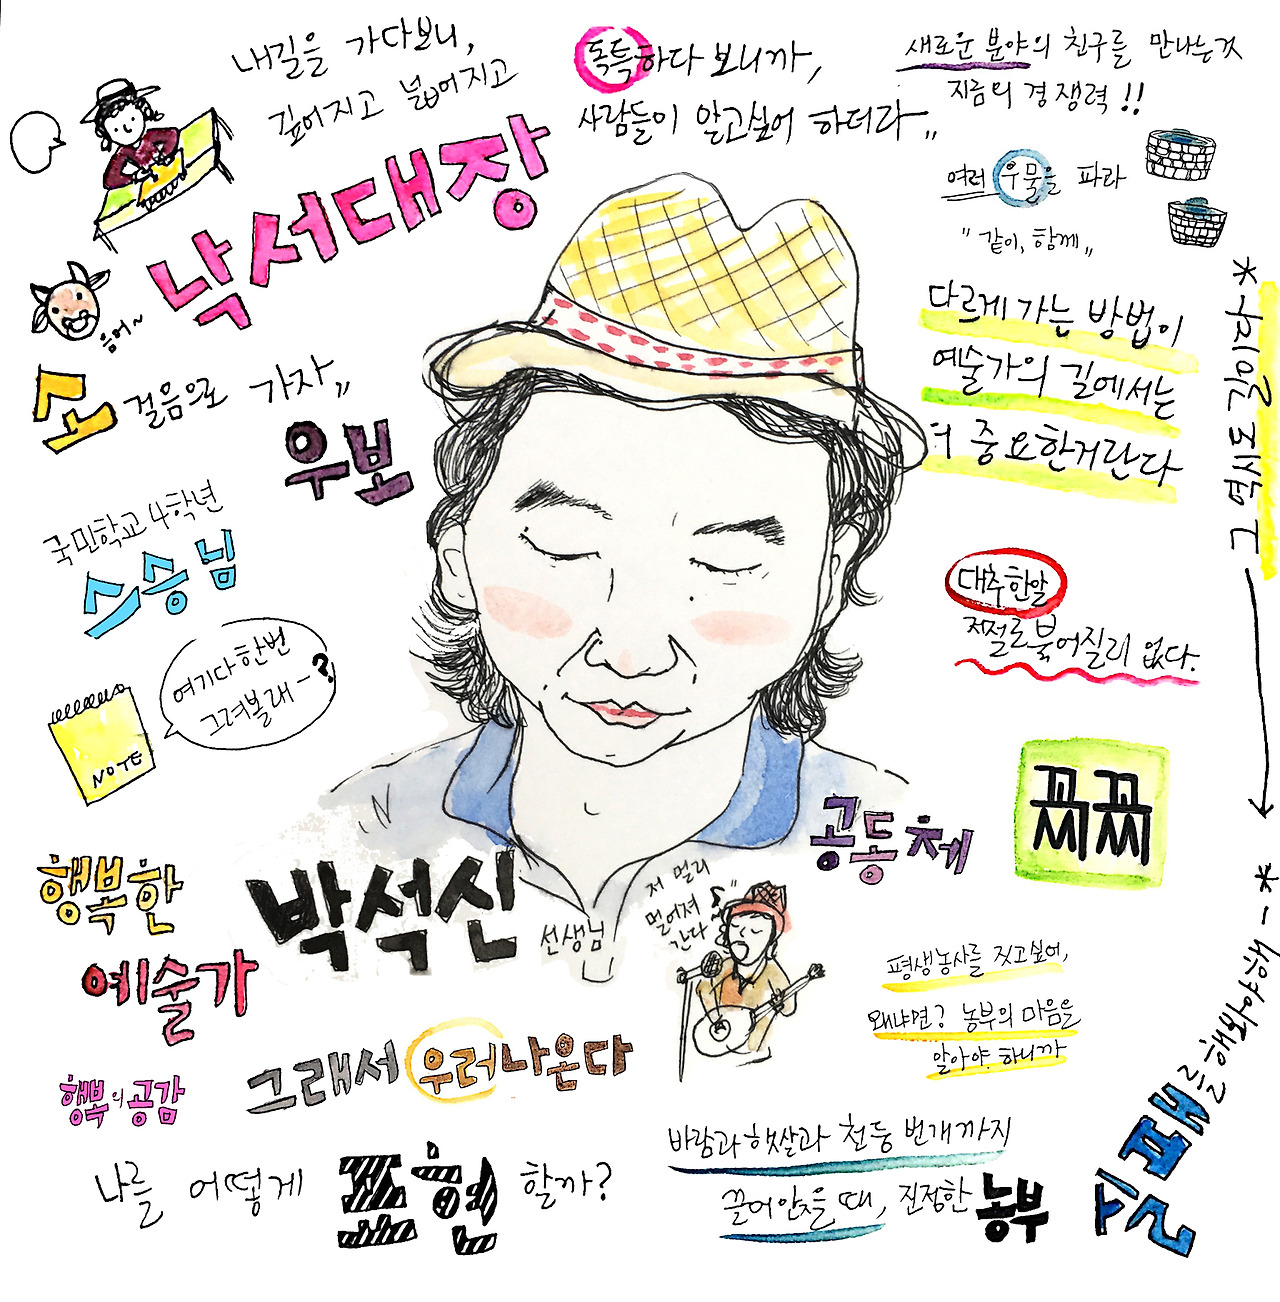 내길을 가다보니,
깊어지고 넓어지고
낙서대장
음머~
소걸음으로 가자"
우보
국민학교 4학년
스승님
여기다한번
그려볼래-?
NOTE
행복한
예술가
박석신
선생님
행복의공감
그래서 우러나온다
나를 어떻게 표현할까?
독특하다 보니까,
사람들이 알고싶어 하더라"
새로운 분야의 친구를 만나는것
지금의 경쟁력!!
여러 우물을 파라
"같이, 함께"
다르게 가는 방법이
예술가의 길에서는
더 중요한거란다
대추한알
저절로 붉어질리 없다.
꼭꼭
공동체
저 멀리
멀어져
간다~
평생농사를 짓고싶어,
왜냐면? 농부의 마음을
알아야 하니까
바람과 햇살과 천둥 번개까지
끌어안을 때, 진정한 농부
실패를 해봐야해